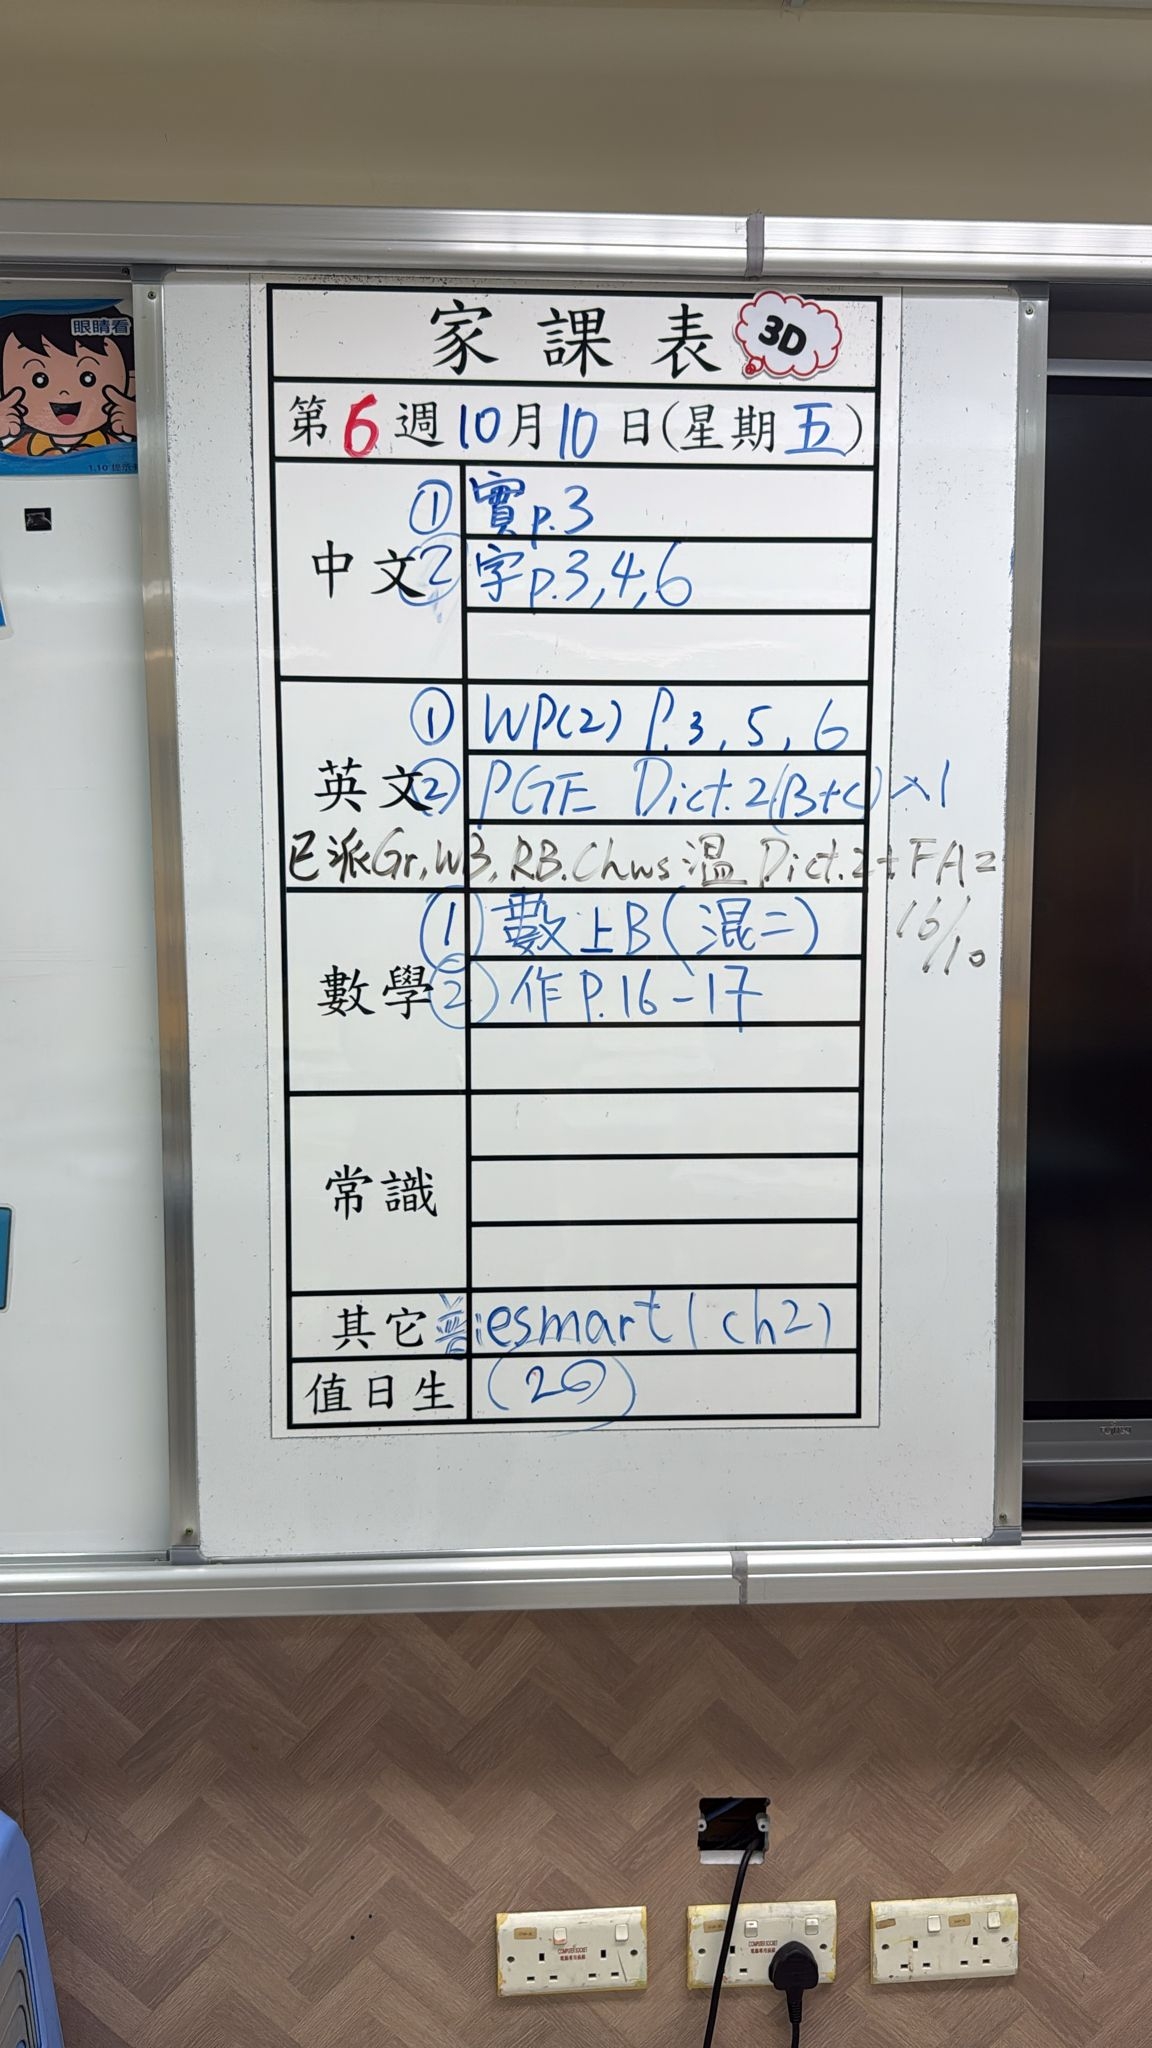 眼睛看
家課表 3D
第6週10月10日(星期五)
中文
① 實p.3
② 字p.3,4,6
英文
① WP(2) P.3, 5, 6
② PGE Dict.2(B+C)×1
已派Gr,WB,RB.Chws 溫 Dict.2+FA2
16/10
數學
① 數上B(混二)
② 作P.16-17
常識
其它 普:esmart(ch2)
值日生 (26)
FUJITSU
COMPUTER SOCKET
COMPUTER SOCKET